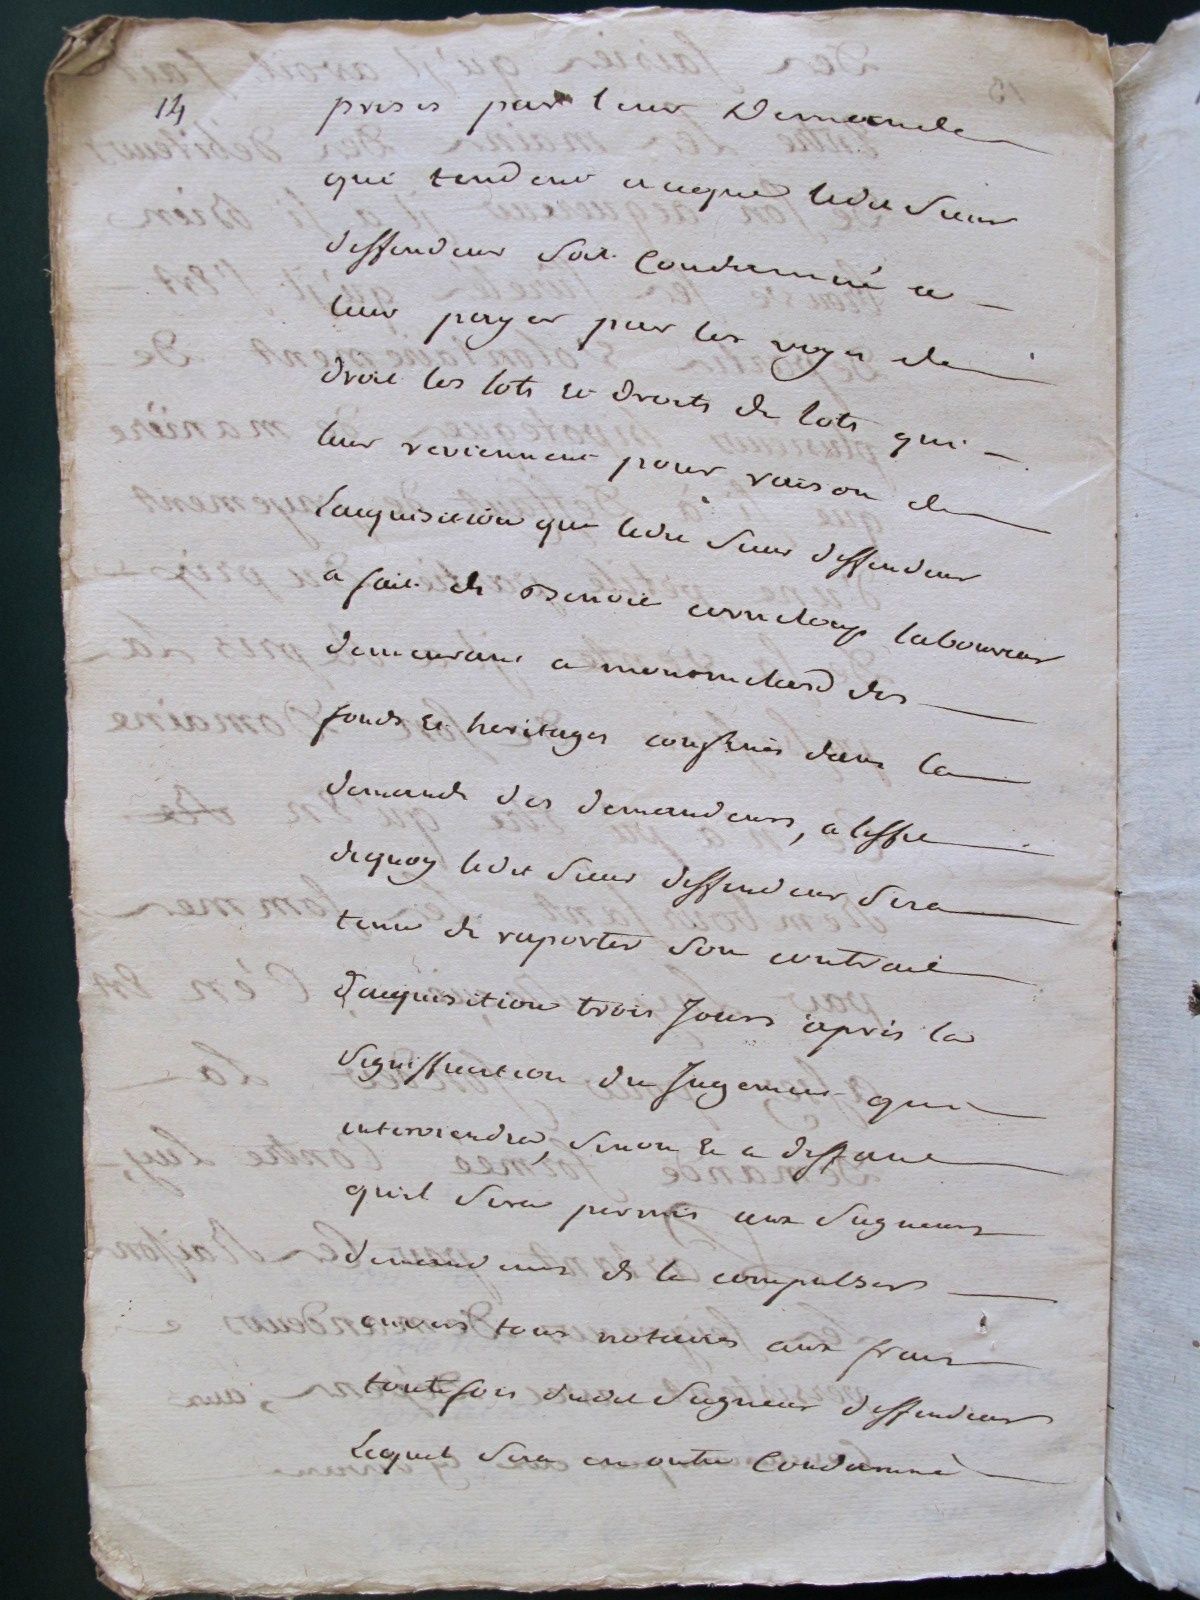 14
prises par leur Demande
que tendent a ceque ledit Sieur
deffendeur Soit Condamné a
leur payer par les voyes de
droit les lots et droits de lots qui
leur reviennent pour raison de
Lacquisition que ledit Sieur deffendeur
a fait de Benoit laboureur
demeurant a des
fonds et heritages confinés dans la
demande des demandeurs, a leffet
dequoy ledit Sieur deffendeur Sera
tenu de raporter Son contract
d'acquisition trois Jours après la
Signiffication du Jugement qui
interviendra, Sinon et a deffaut
quil Sera permis aux Seigneurs
demandeurs de le compulser
envers tous notaires aux frais
toutefois dudit Seigneur deffendeur
Lequel Sera en outre Condamné